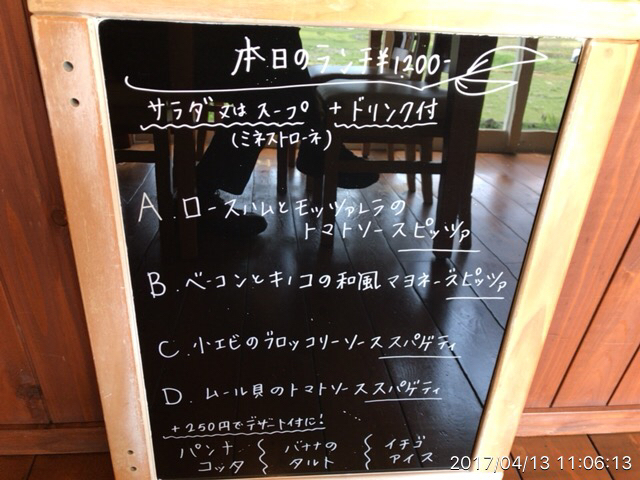 本日のランチ¥1200-
サラダ 又は スープ + ドリンク付
(ミネストローネ)
A. ロースハムとモッツァレラの
トマトソーススピッツァ
B. ベーコンとキノコの和風マヨネーズピッツァ
C. 小エビのブロッコリーソーススパゲティ
D. ムール貝のトマトソーススパゲティ
+250円でデザート付に!
パンナ コッタ
バナナの タルト
イチゴ アイス
2017/04/13 11:06:13